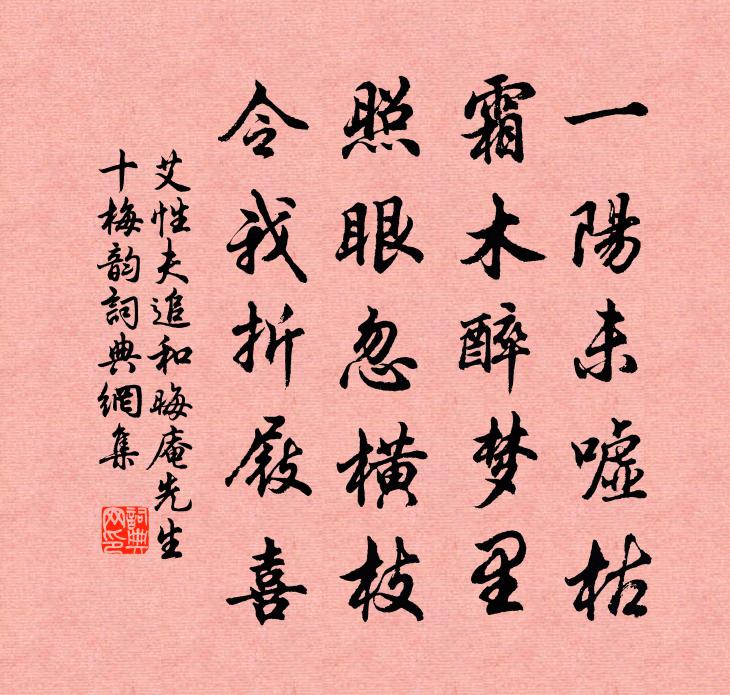 一陽未嘘枯
霜木醉梦里
照眼忽横枝
令我折屐喜
艾性夫追和晦庵先生
十梅韵詞典網集
詞典
网印